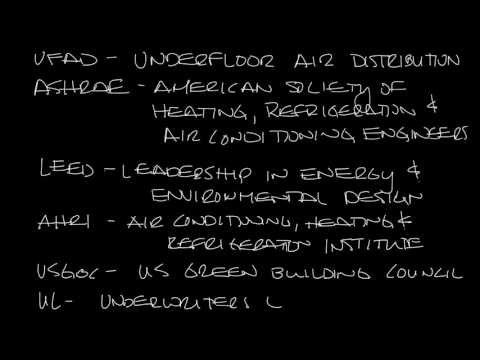 UFAD - UNDERFLOOR AIR DISTRIBUTION
ASHRAE - AMERICAN SOCIETY OF
HEATING, REFRIGERATION &
AIR CONDITIONING ENGINEERS
LEED - LEADERSHIP IN ENERGY &
ENVIRONMENTAL DESIGN
AHRI - AIR CONDITIONING, HEATING &
REFRIGERATION INSTITUTE
USGBC - US GREEN BUILDING COUNCIL
UL - UNDERWRITERS L